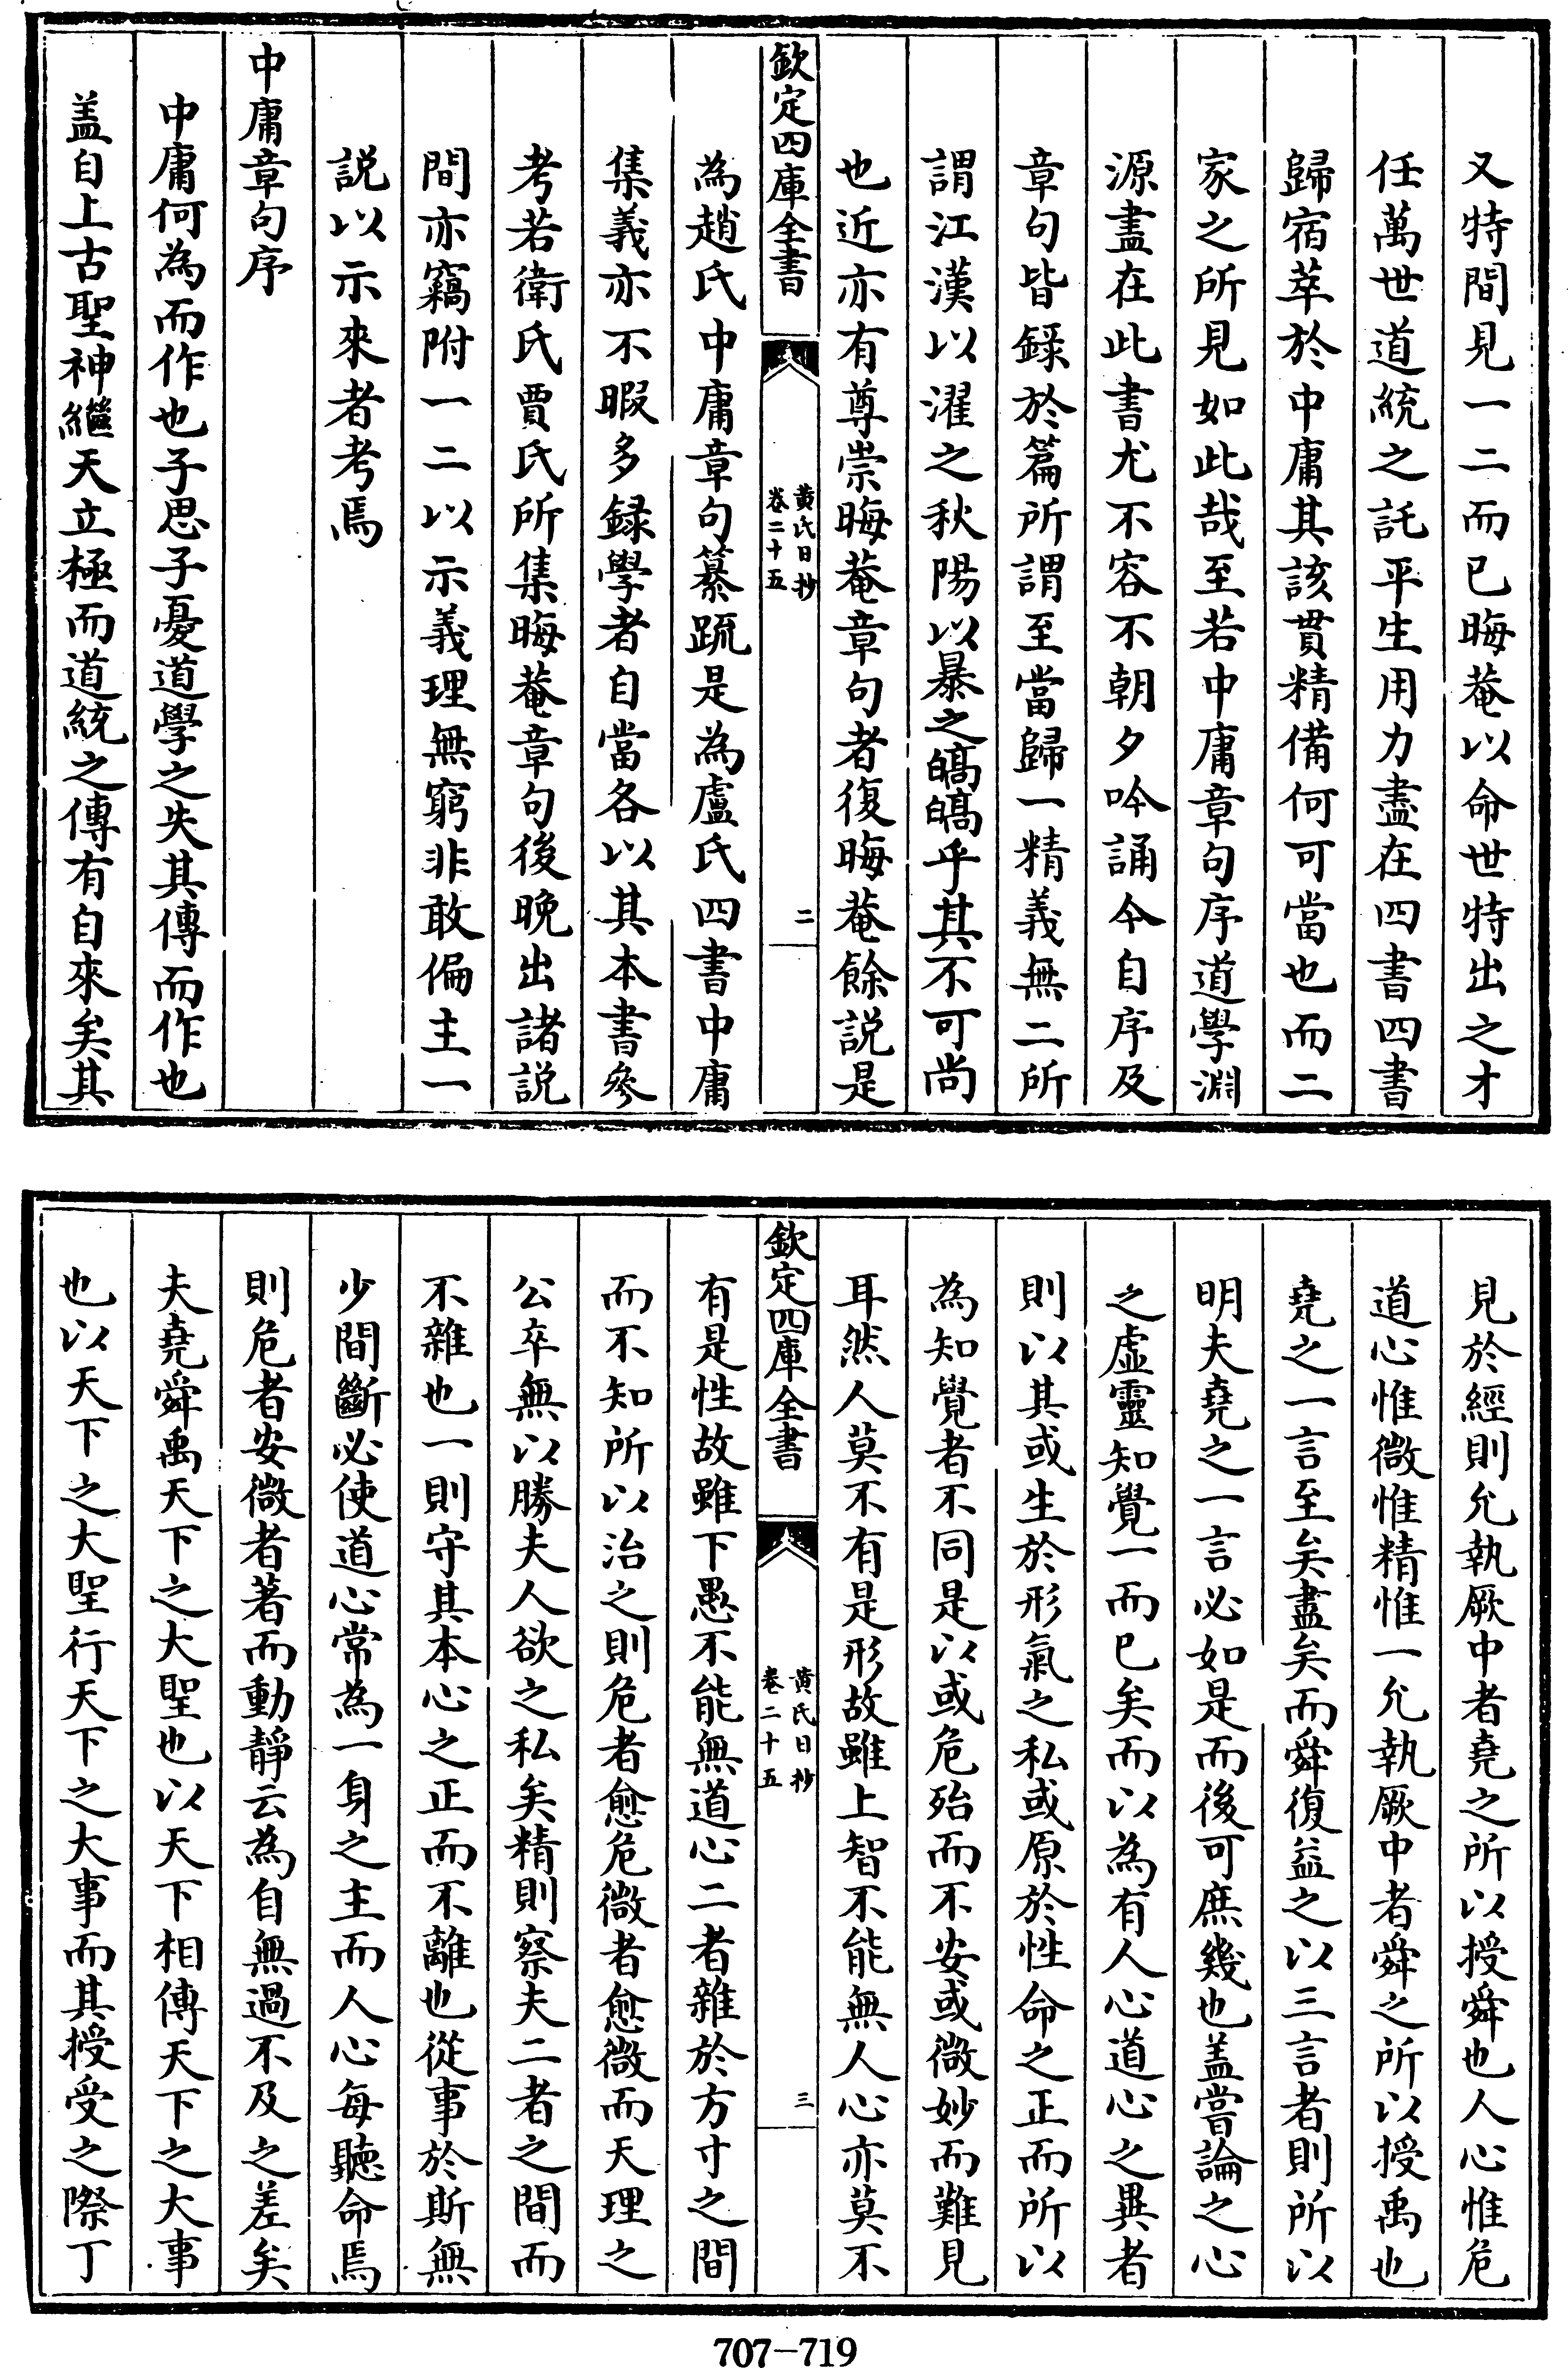 又特間見一二而已晦菴以命世特出之才
任萬世道統之託平生用力盡在四書四書
歸宿萃於中庸其該貫精備何可當也而二
家之所見如此哉至若中庸章句序道學淵
源盡在此書尤不容不朝夕吟誦今自序及
章句皆録於篇所謂至當歸一精義無二所
謂江漢以濯之秋陽以暴之皜皜乎其不可尚
也近亦有尊崇晦菴章句者復晦菴餘説是
欽定四庫全書
黄氏日抄
卷二十五
二
為趙氏中庸章句纂疏是為盧氏四書中庸
集義亦不暇多録學者自當各以其本書參
考若衛氏賈氏所集晦菴章句後晚出諸説
間亦竊附一二以示義理無窮非敢偏主一
説以示來者考焉
中庸章句序
中庸何為而作也子思子憂道學之失其傳而作也
盖自上古聖神繼天立極而道統之傳有自來矣其
見於經則允執厥中者堯之所以授舜也人心惟危
道心惟微惟精惟一允執厥中者舜之所以授禹也
堯之一言至矣盡矣而舜復益之以三言者則所以
明夫堯之一言必如是而後可庶幾也盖嘗論之心
之虛靈知覺一而已矣而以為有人心道心之異者
則以其或生於形氣之私或原於性命之正而所以
為知覺者不同是以或危殆而不安或微妙而難見
耳然人莫不有是形故雖上智不能無人心亦莫不
欽定四庫全書
黄氏日抄
卷二十五
三
有是性故雖下愚不能無道心二者雜於方寸之間
而不知所以治之則危者愈危微者愈微而天理之
公卒無以勝夫人欲之私矣精則察夫二者之間而
不雜也一則守其本心之正而不離也從事於斯無
少間斷必使道心常為一身之主而人心每聽命焉
則危者安微者著而動靜云為自無過不及之差矣
夫堯舜禹天下之大聖也以天下相傳天下之大事
也以天下之大聖行天下之大事而其授受之際丁
707-719